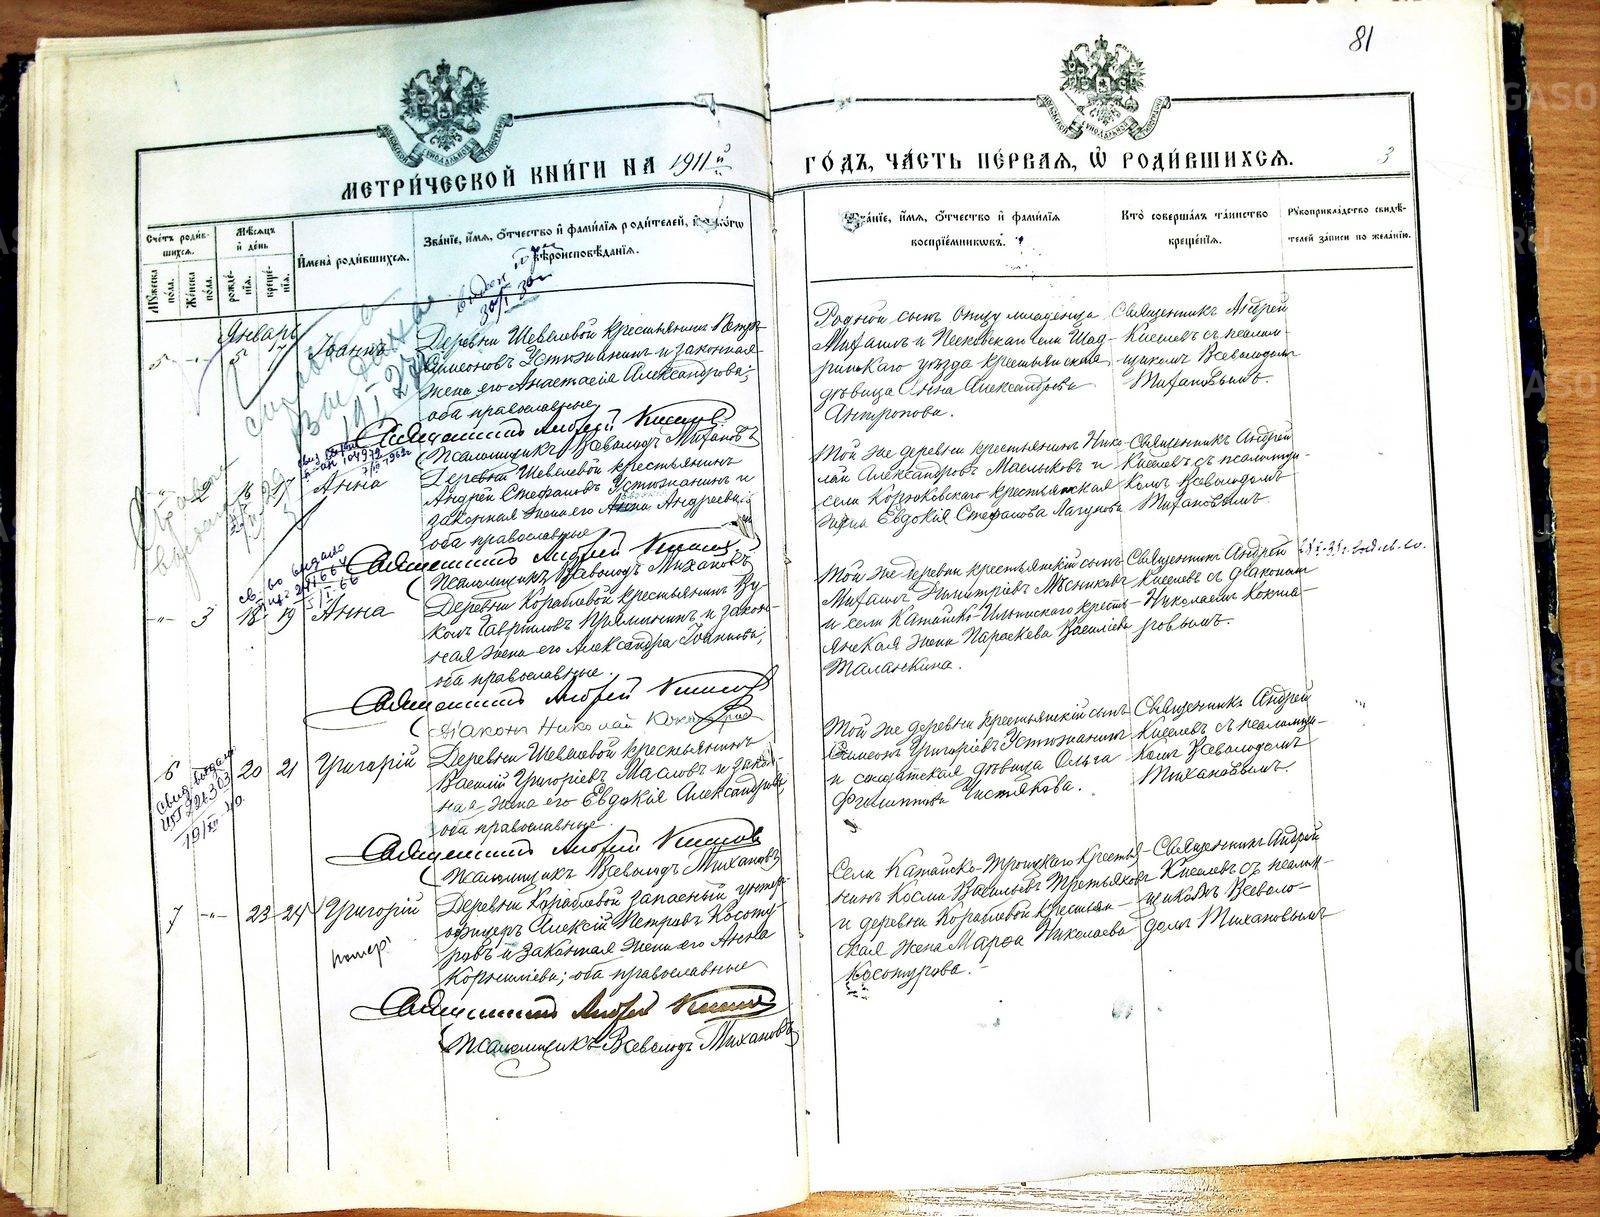 81
МЕТРИ́ЧЕСКОЙ КНИ́ГИ НА 1911й
ГО́ДЪ, ЧА́СТЬ ПЕ́РВАЯ, Ѡ҆ РОДИ́ВШИХСѦ.
3
Сче́тъ роди́в-
шихсѧ.
Мѣ́сѧцъ
и҆ де́нь
Мꙋ́жеска по́ла.
Же́нска по́ла.
рожде́-
нїѧ.
креще́-
нїѧ.
И҆мена̀ роди́вшихсѧ.
Зва́нїе, и҆́мѧ, ѻ҆́тчество и҆ фами́лїѧ роди́телей, и҆
вѣроисповѣ́данїѧ.
Зва́нїе, и҆́мѧ, ѻ҆́тчество и҆ фами́лїѧ
воспрїе́мникѡвъ.
Кто̀ соверша́лъ та́инство
креще́нїѧ.
Рꙋкоприкла́дство свидѣ́-
телей за́писи по жела́нїю.
Январь
5 " 5 17 Іоаннъ
Деревни Шевелевой крестьянинъ Петръ
Симеоновъ Устюжанинъ и законная
жена его Анастасія Александрова;
оба православные.
Священникъ Андрей Киселевъ
Псаломщикъ Всеволодъ Тихановъ
Родной сынъ отцу младенца
Михаилъ и Песковскаго села Шад-
ринскаго уѣзда крестьянская
дѣвица Анна Александрова
Антропова.
Священникъ Андрей
Киселевъ съ псалом-
щикомъ Всеволодомъ
Тихановымъ.
" 2 16 17 Анна
Деревни Шевелевой крестьянинъ
Андрей Стефановъ Устюжанинъ и
законная жена его Анна Андреевна
оба православные
Священникъ Андрей Киселевъ
Псаломщикъ Всеволодъ Тихановъ
Той же деревни крестьянинъ Нико-
лай Александровъ Маслыковъ и
села Корюковскаго крестьянская
Евдокія Стефанова Лагунова
Священникъ Андрей
Киселевъ съ псаломщи-
комъ Всеволодомъ
Тихановымъ.
-"- 3 18 19 Анна
Деревни Кораблевой крестьянинъ Ву-
колъ Гавриловъ Пряминъ и закон-
ная жена его Александра Іоаннова;
оба православные.
Священникъ Андрей Киселевъ
Діаконъ Николай
Той же деревни крестьянскій сынъ
Михаилъ Димитріевъ Мясниковъ
и села Катайско-Ильинскаго кресть-
янская жена Параскева Василіева
Таланкина.
Священникъ Андрей
Киселевъ съ діакономъ
Николаемъ
6 20 21 Григорій
Деревни Шевелевой крестьянинъ
Василій Григоріевъ Масловъ и закон-
ная жена его Евдокія Александрова;
оба православные
Священникъ Андрей Киселевъ
Псаломщикъ Всеволодъ Тихановъ
Той же деревни крестьянскій сынъ
Симеонъ Григоріевъ Устюжанинъ
и солдатская дѣвица Ольга
Филиппова Чистякова.
Священникъ Андрей
Киселевъ съ псаломщи-
комъ Всеволодомъ
Тихановымъ.
7 -"- 23 24 Григорій
помер
Деревни Кораблевой запасный унтеръ-
офицеръ Алексій Петровъ Косоту-
ровъ и законная жена его Анна
Корниліева; оба православные
Священникъ Андрей Киселевъ
Псаломщикъ Всеволодъ Тихановъ
Села Катайско-Троицкаго крестья-
нинъ Косма Васильевъ Третьяковъ
и деревни Кораблевой крестьян-
ская жена Марѳа Николаева
Косотурова.
Священникъ Андрей
Киселевъ съ псалом-
щикомъ Всеволо-
домъ Тихановымъ